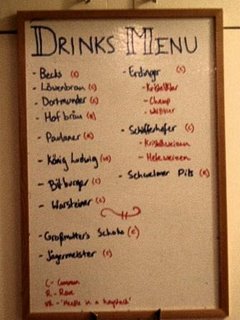 DRINKS MENU
- Becks (C)
- Löwenbrau (C)
- Dortmunder (C)
- Hofbräu (R)
- Paulaner (R)
- König Ludwig (NH)
- Bitburger (C)
- Warsteiner (C)
- Großmutter's Schoko (C)
- Jägermeister (C)
- Erdinger (C)
- Champ
- Schöfferhofer (C)
- Kristallweizen
- Hefeweizen
- Schwelmer Pils (R)
C - Common
R - Rare
NH - 'Needle in a haystack'